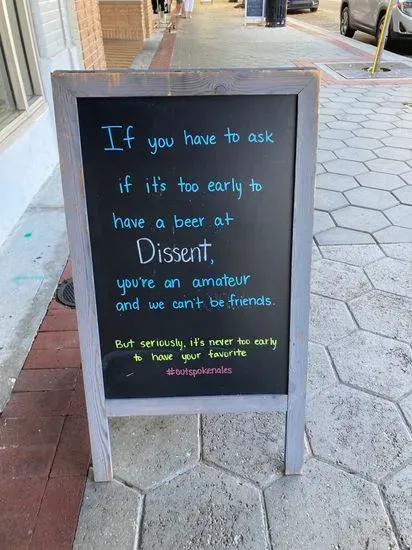 If you have to ask
if it's too early to
have a beer at
Dissent,
you're an amateur
and we can't be friends.
But seriously, it's never too early
to have your favorite
#outspokenales